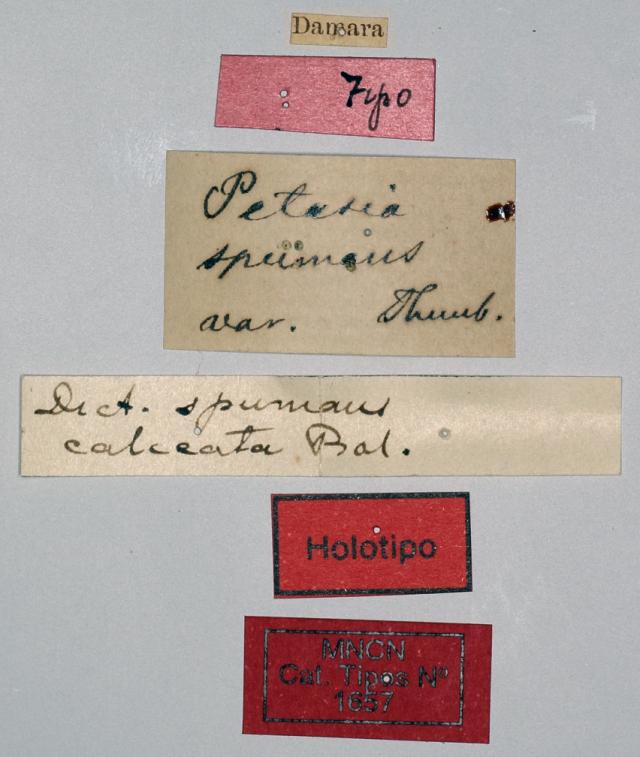 Damara
Tipo
Petasia
spumans
var. Thunb.
Dict. spumans
calceata Bol.
Holotipo
MNCN
Cat. Tipos Nº
1657